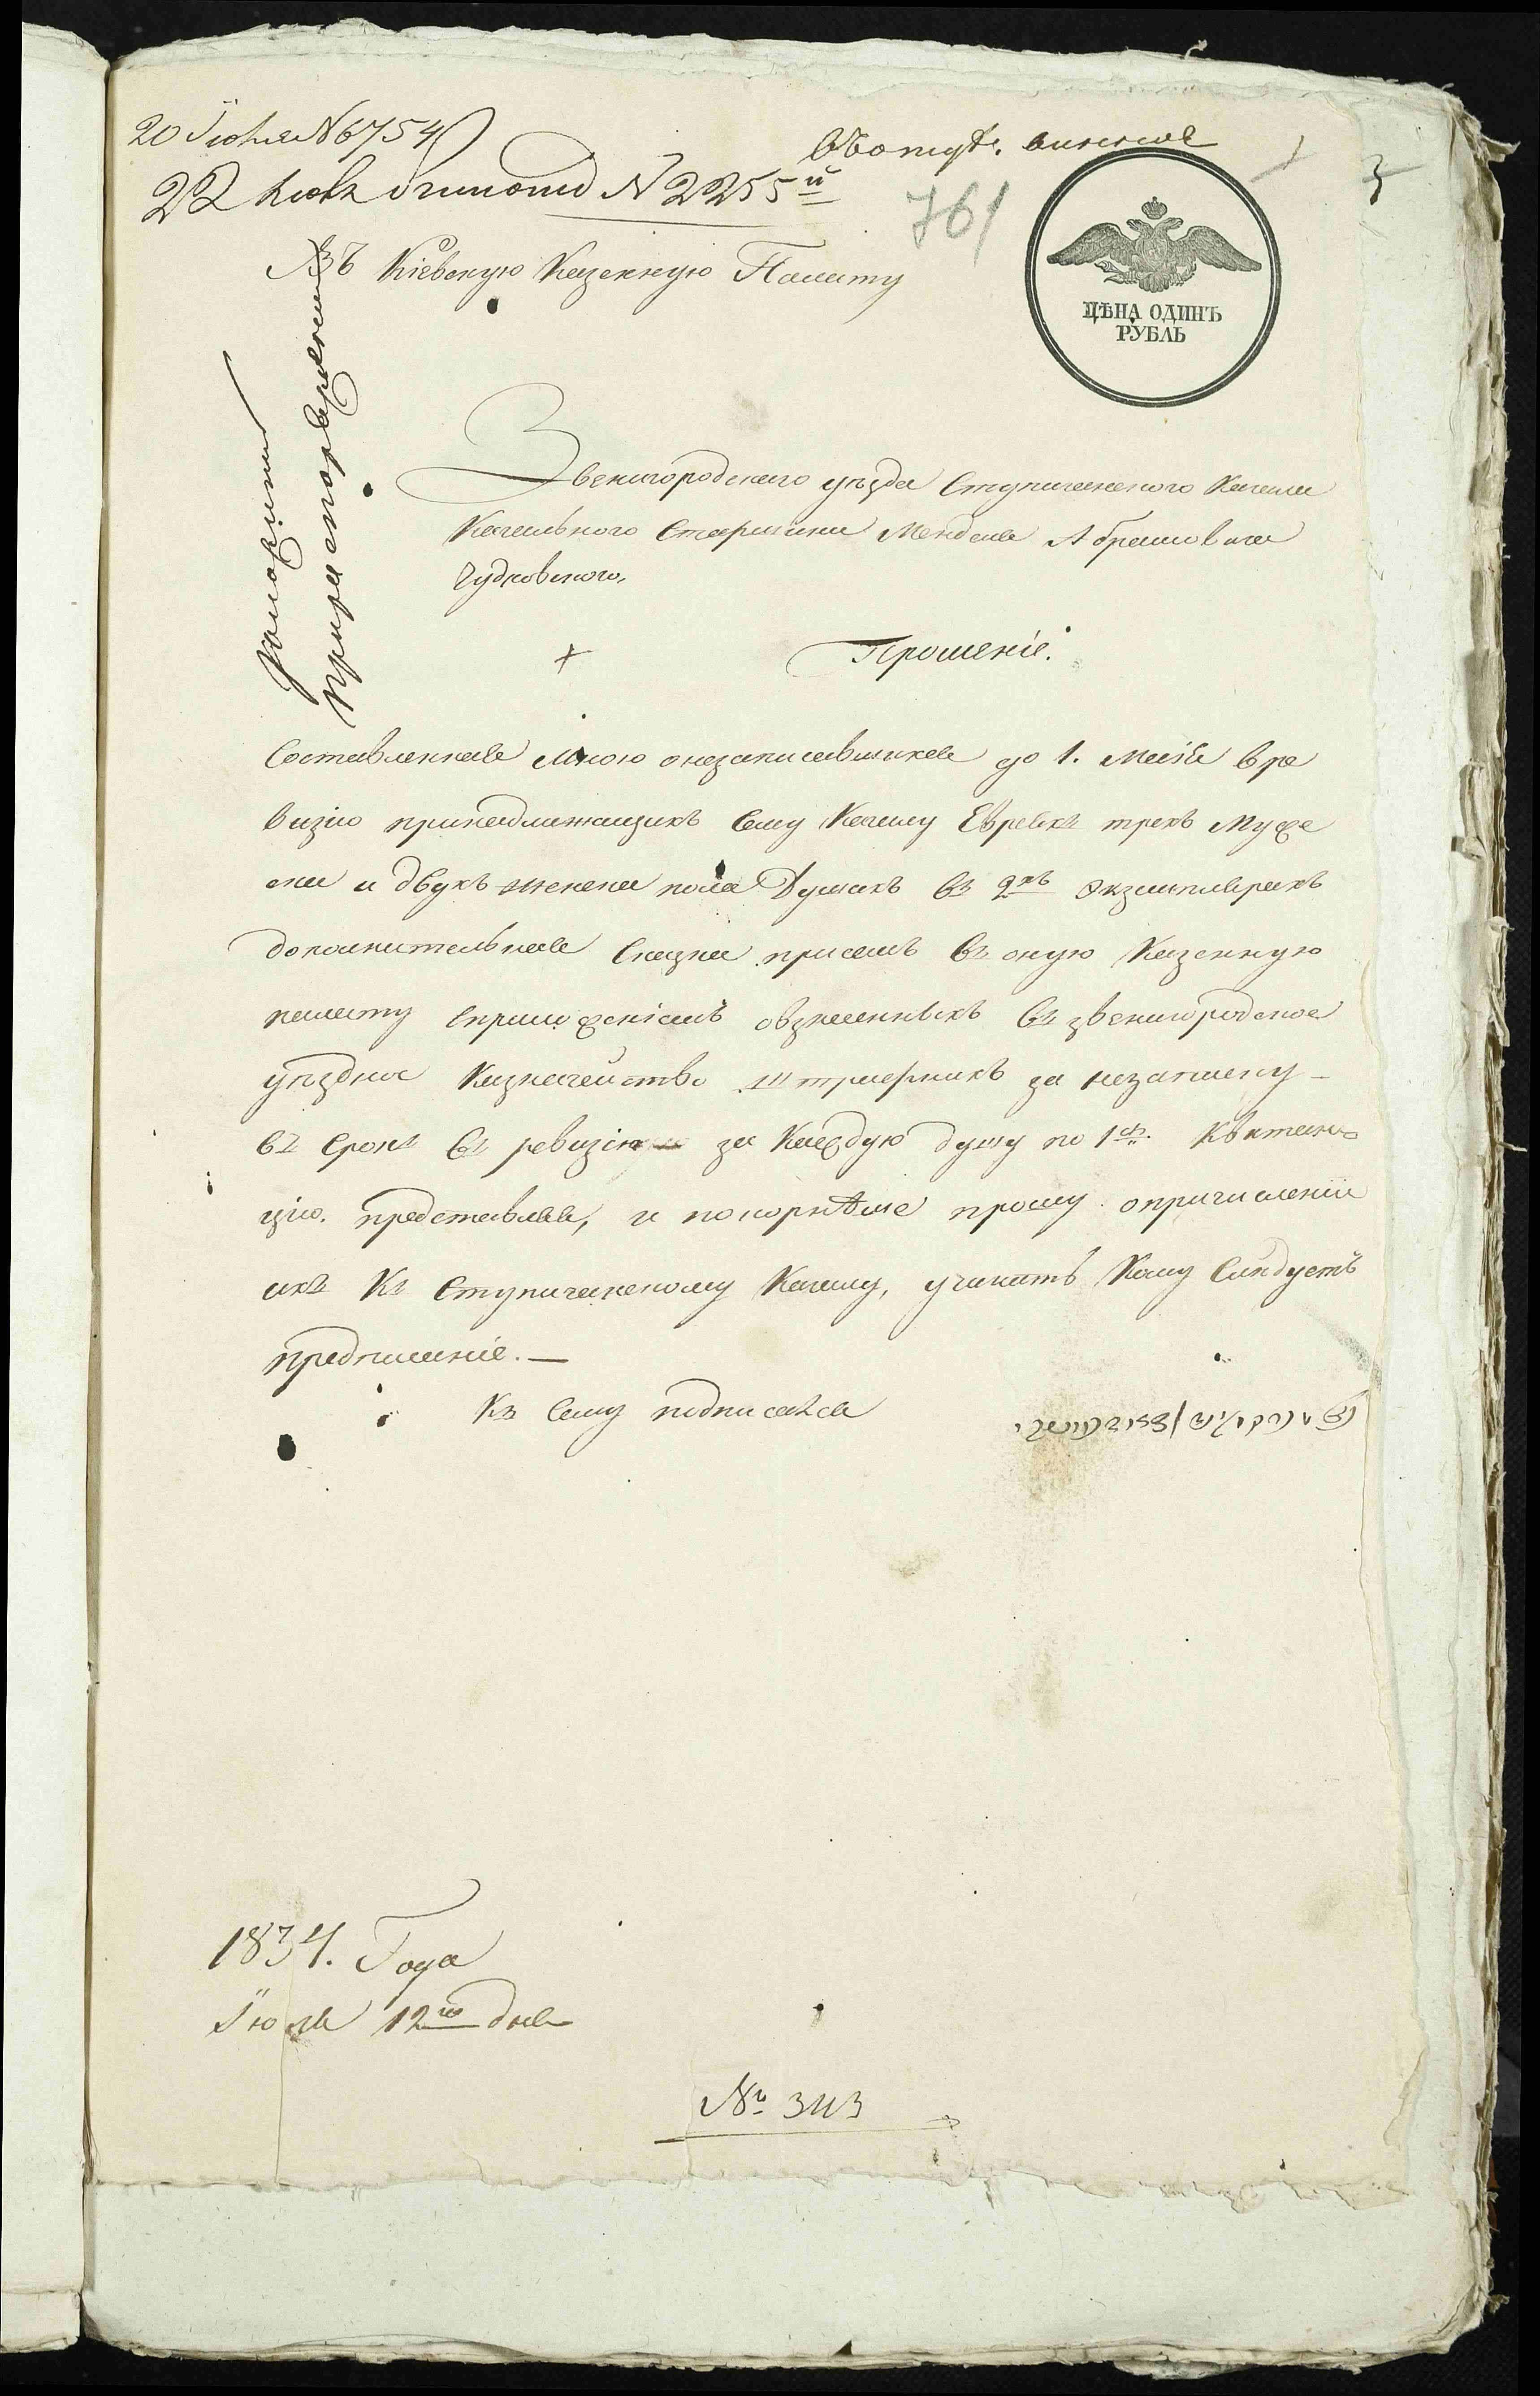 20 Іюня № 6754
22 Іюня № 2255й
761
3
Въ Кіевскую Казенную Палату
ЦѢНА ОДИНЪ
РУБЛЬ
Звенигородского уѣзда Ступичанского Кагала
Кагального Старшины Менделя Абрамовича
Чудновского,
Прошеніе.
Составленные мною о незаписавшихся до 1. Маія в ре
визію принадлежащихъ сему Кагалу Евреяхъ трехъ муже
ска и двухъ женска пола Душахъ въ 2хъ экземплярахъ
дополнительные сказки при семъ въ оную Казенную
палату с приложеніемъ о взнесенныхъ въ Звенигородское
уѣздное Казначейство штрафныхъ за незаписку
въ срокъ въ ревизію за каждую душу по 1 Квитан=
цію. представляя, и покорнѣше прошу о причисленіи
ихъ Къ Ступичанскому Кагалу, учинить Кому Слѣдуетъ
предписаніе. —
Къ сему подписался
1834. Года
Іюня 12го дня
№ 343